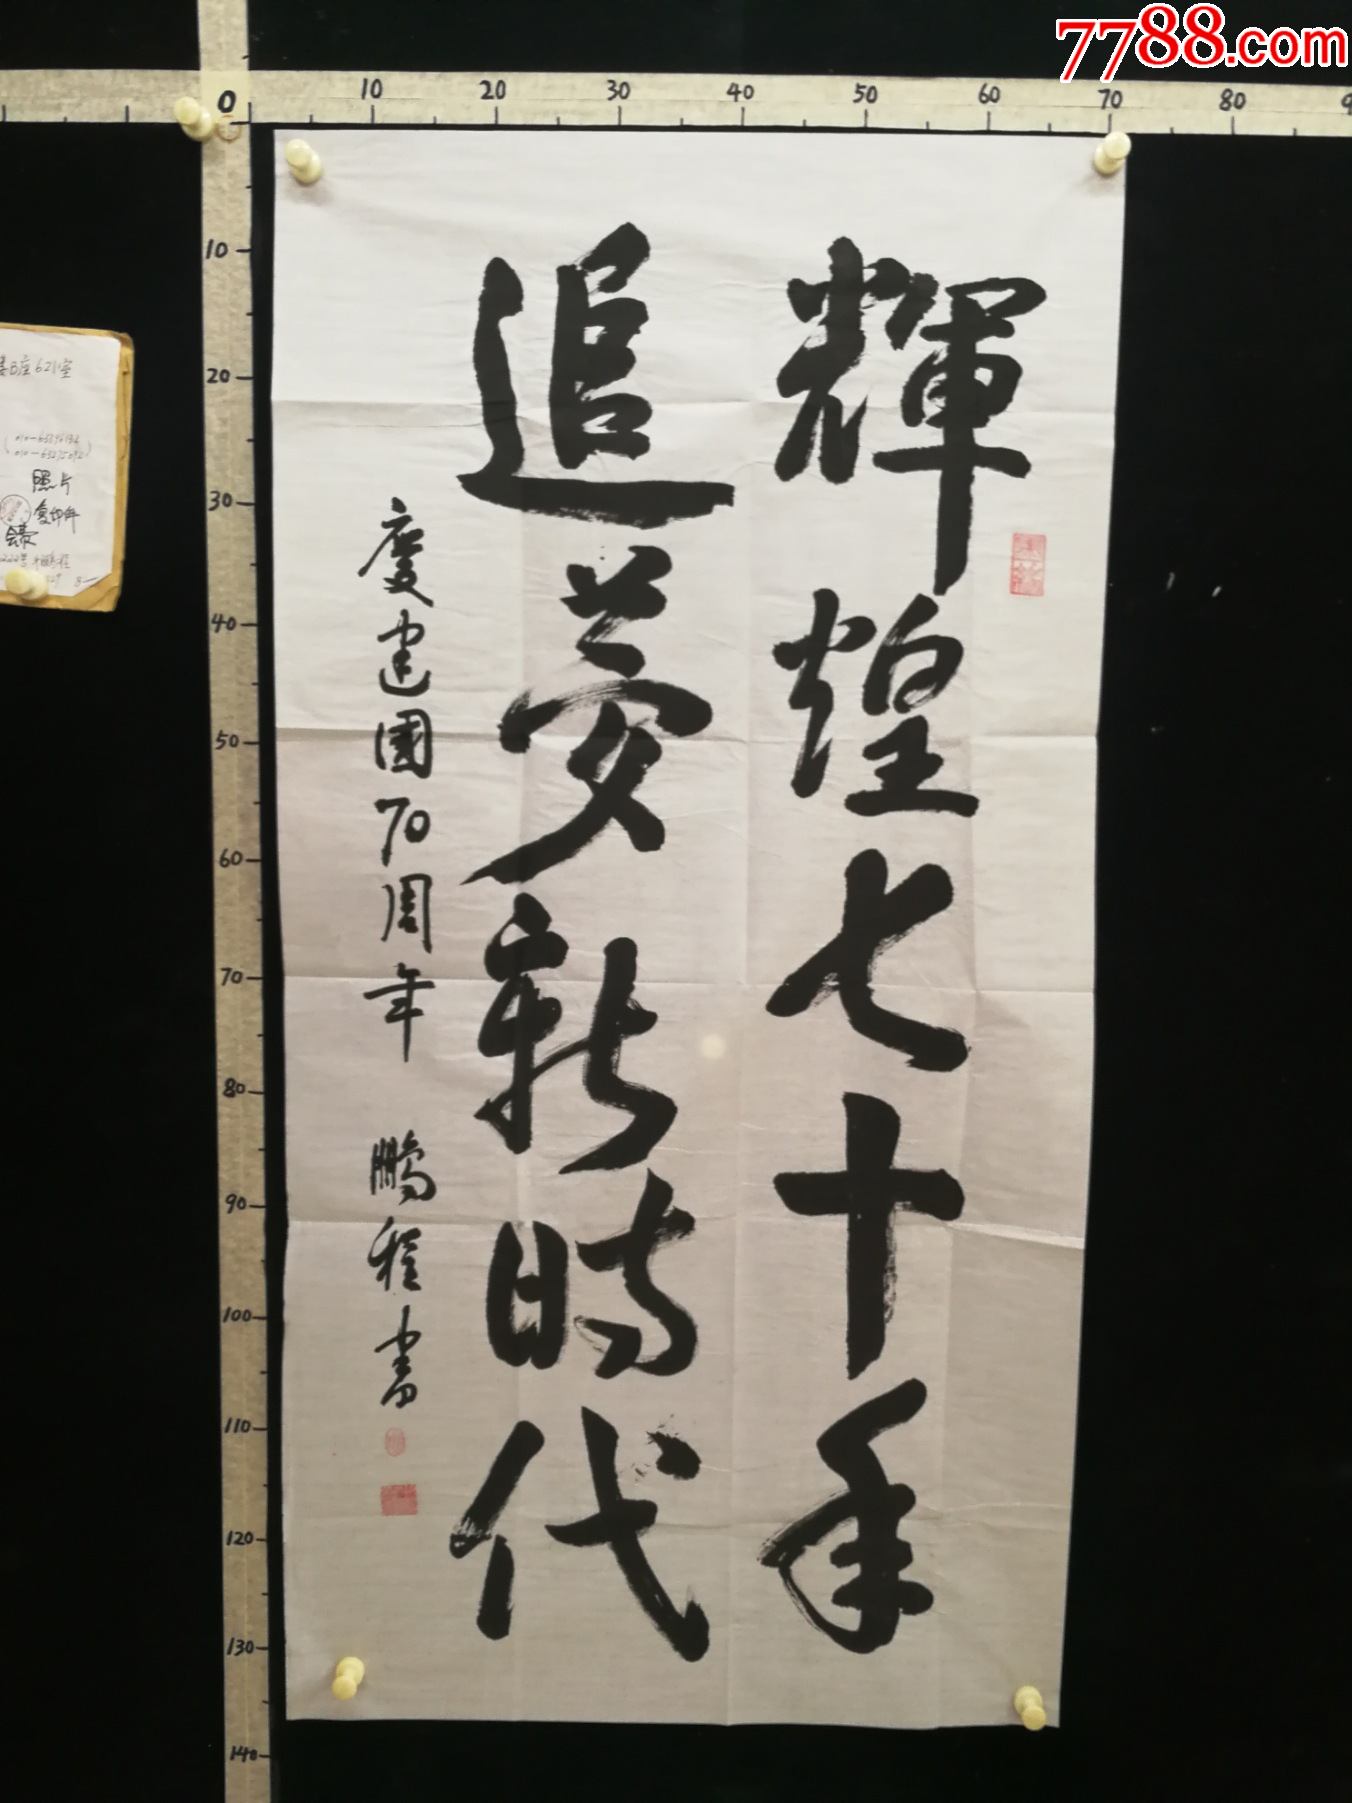 7788.com
0 10 20 30 40 50 60 70 80 9
10
20
30
40
50
60
70
80
90
100
110
120
130
140
輝煌七十年
追夢新時代
慶建國70周年 鵬程書
B座621室
照片
复印件